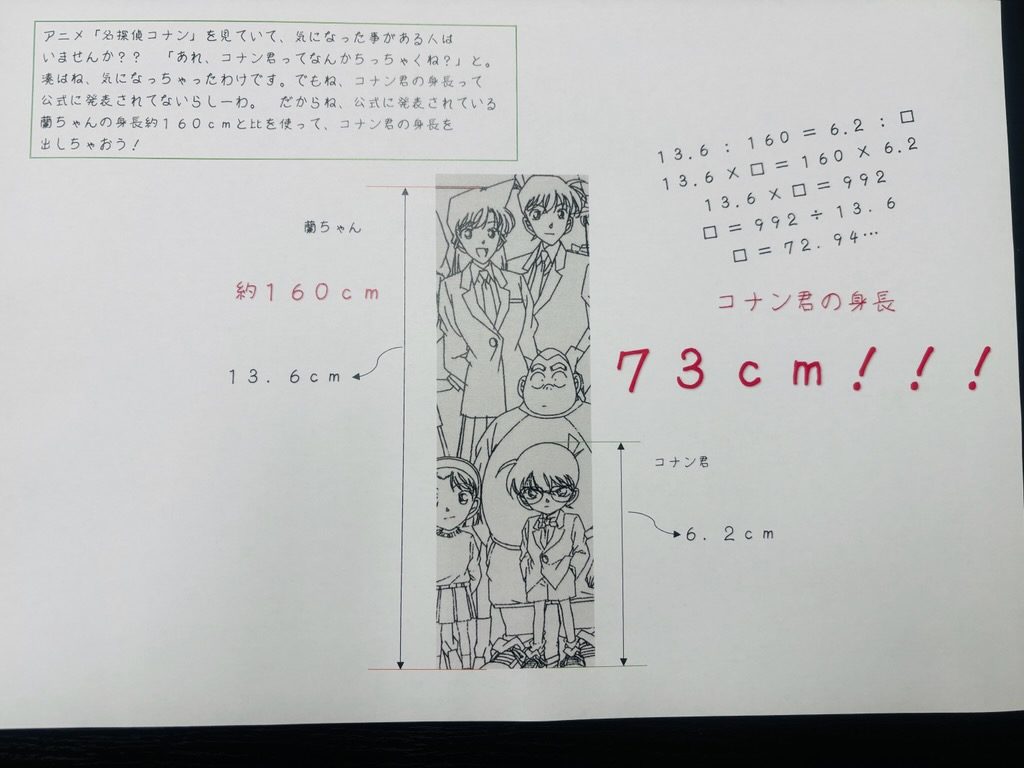 アニメ「名探偵コナン」を見ていて、気になった事がある人は
いませんか？？　「あれ、コナン君ってなんかちっちゃくね？」と。
湊はね、気になっちゃったわけです。でもね、コナン君の身長って
公式に発表されてないらしーわ。　だからね、公式に発表されている
蘭ちゃんの身長約１６０ｃｍと比を使って、コナン君の身長を
出しちゃおう！
１３．６：１６０＝６．２：□
１３．６×□＝１６０×６．２
１３．６×□＝９９２
□＝９９２÷１３．６
□＝７２．９４…
蘭ちゃん
約１６０ｃｍ
１３．６ｃｍ
コナン君の身長
７３ｃｍ！！！
コナン君
６．２ｃｍ